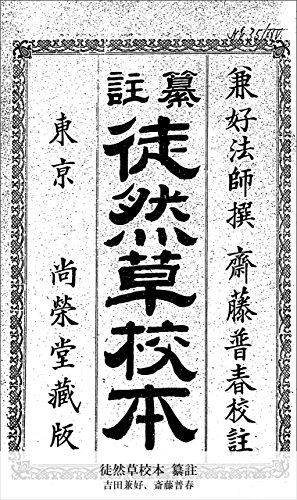 兼好法師撰 齋藤普春校註
纂註
徒然草校本
東京 尚榮堂藏版
徒然草校本 纂註
吉田兼好、斎藤普春